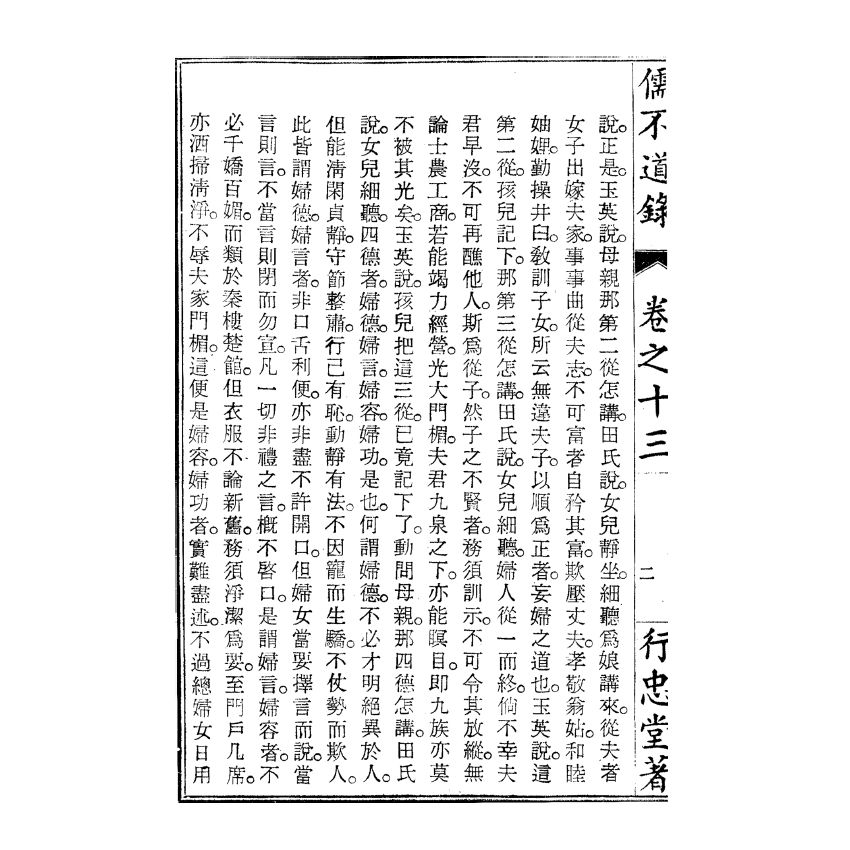 儒不道錄 卷之十三 二 行忠堂著
說。正是。玉英說。母親那第二從怎講。田氏說。女兒靜坐。細聽為娘講來。從夫者
女子出嫁夫家。事事曲從夫志。不可富者自矜其富。欺壓丈夫。孝敬翁姑。和睦
妯娌。勤操井臼。教訓子女。所云無違夫子。以順為正者。妾婦之道也。玉英說。這
第二從。孩兒記下。那第三從怎講。田氏說。女兒細聽。婦人從一而終。倘不幸夫
君早沒。不可再醮他人。斯為從子。然子之不賢者。務須訓示。不可令其放縱。無
論士農工商。若能竭力經營。光大門楣。夫君九泉之下。亦能瞑目。即九族亦莫
不被其光矣。玉英說。孩兒把這三從。已竟記下了。動問母親。那四德怎講。田氏
說。女兒細聽。四德者。婦德。婦言。婦容。婦功。是也。何謂婦德。不必才明絕異於人。
但能淸閑貞靜。守節整肅。行己有恥。動靜有法。不因寵而生驕。不仗勢而欺人。
此皆謂婦德。婦言者。非口舌利便。亦非盡不許開口。但婦女當要擇言而說。當
言則言。不當言則閉而勿宣。凡一切非禮之言。概不啓口。是謂婦言。婦容者。不
必千嬌百媚。而類於秦樓楚館。但衣服不論新舊。務須淨潔為要。至門戶几席。
亦洒掃淸淨。不辱夫家門楣。這便是婦容。婦功者。實難盡述。不過總婦女日用